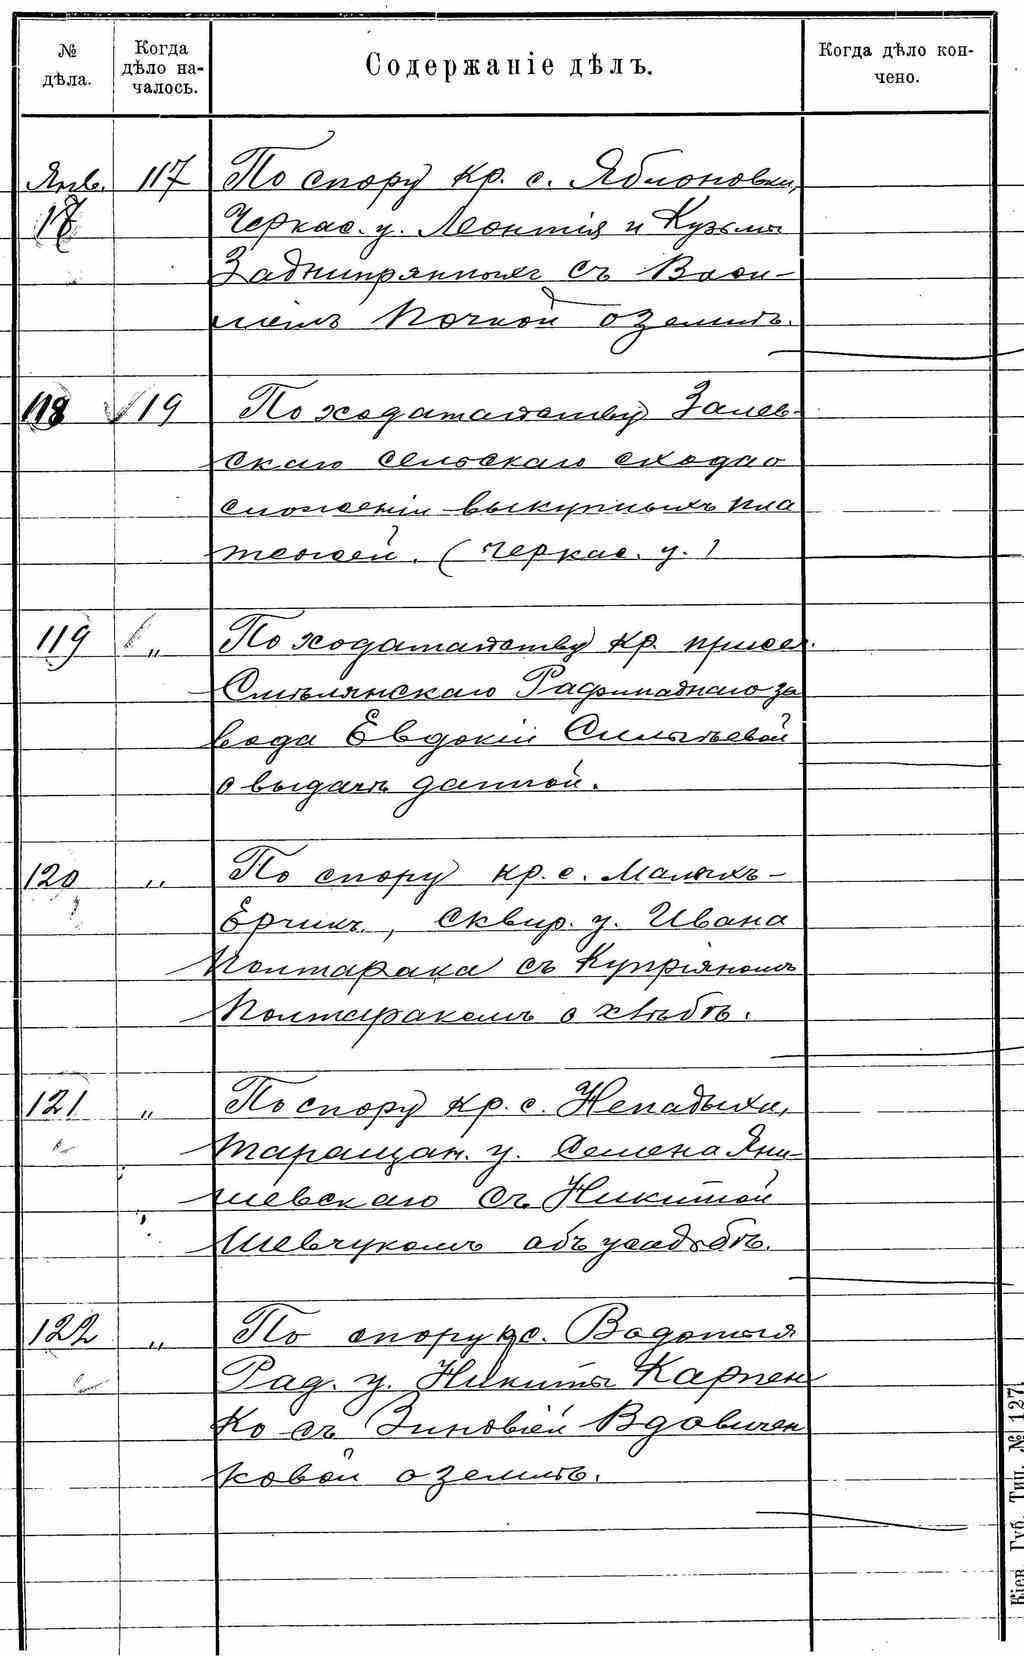 № дѣла.
Когда дѣло на-
чалось.
Содержаніе дѣлъ.
Когда дѣло кон-
чено.
Янв. 117 По спору кр. с. Яблоновки,
17 Черкас. у. Леонтія и Кузьмы
Заднипрянныхъ съ Васи-
ліемъ Почкой о землѣ.
118 19 По ходатайству Залев-
скаго сельскаго схода о
сложеніи выкупныхъ пла
тежей. (Черкас. у.)
119 „ По ходатайству кр. присел.
Смѣлянскаго Рафинаднаго за
вода Евдокіи Силытьевой
о выдачѣ данной.
120 „ По спору кр. с. Малыхъ-
Ерчикъ, Сквир. у. Ивана
Полтарака съ Купріяномъ
Полтаракомъ о хлѣбѣ.
121 „ По спору кр. с. Непадыхи,
Таращан. у. Семена Яни-
шевскаго съ Никитой
Шевчукомъ объ усадьбѣ.
122 „ По спору кр. с. Водотыя
Рад. у. Никиты Карпен
ко съ Зиновіей Вдовичен
ковой о землѣ.
Кіев. Губ. Тип. № 127.